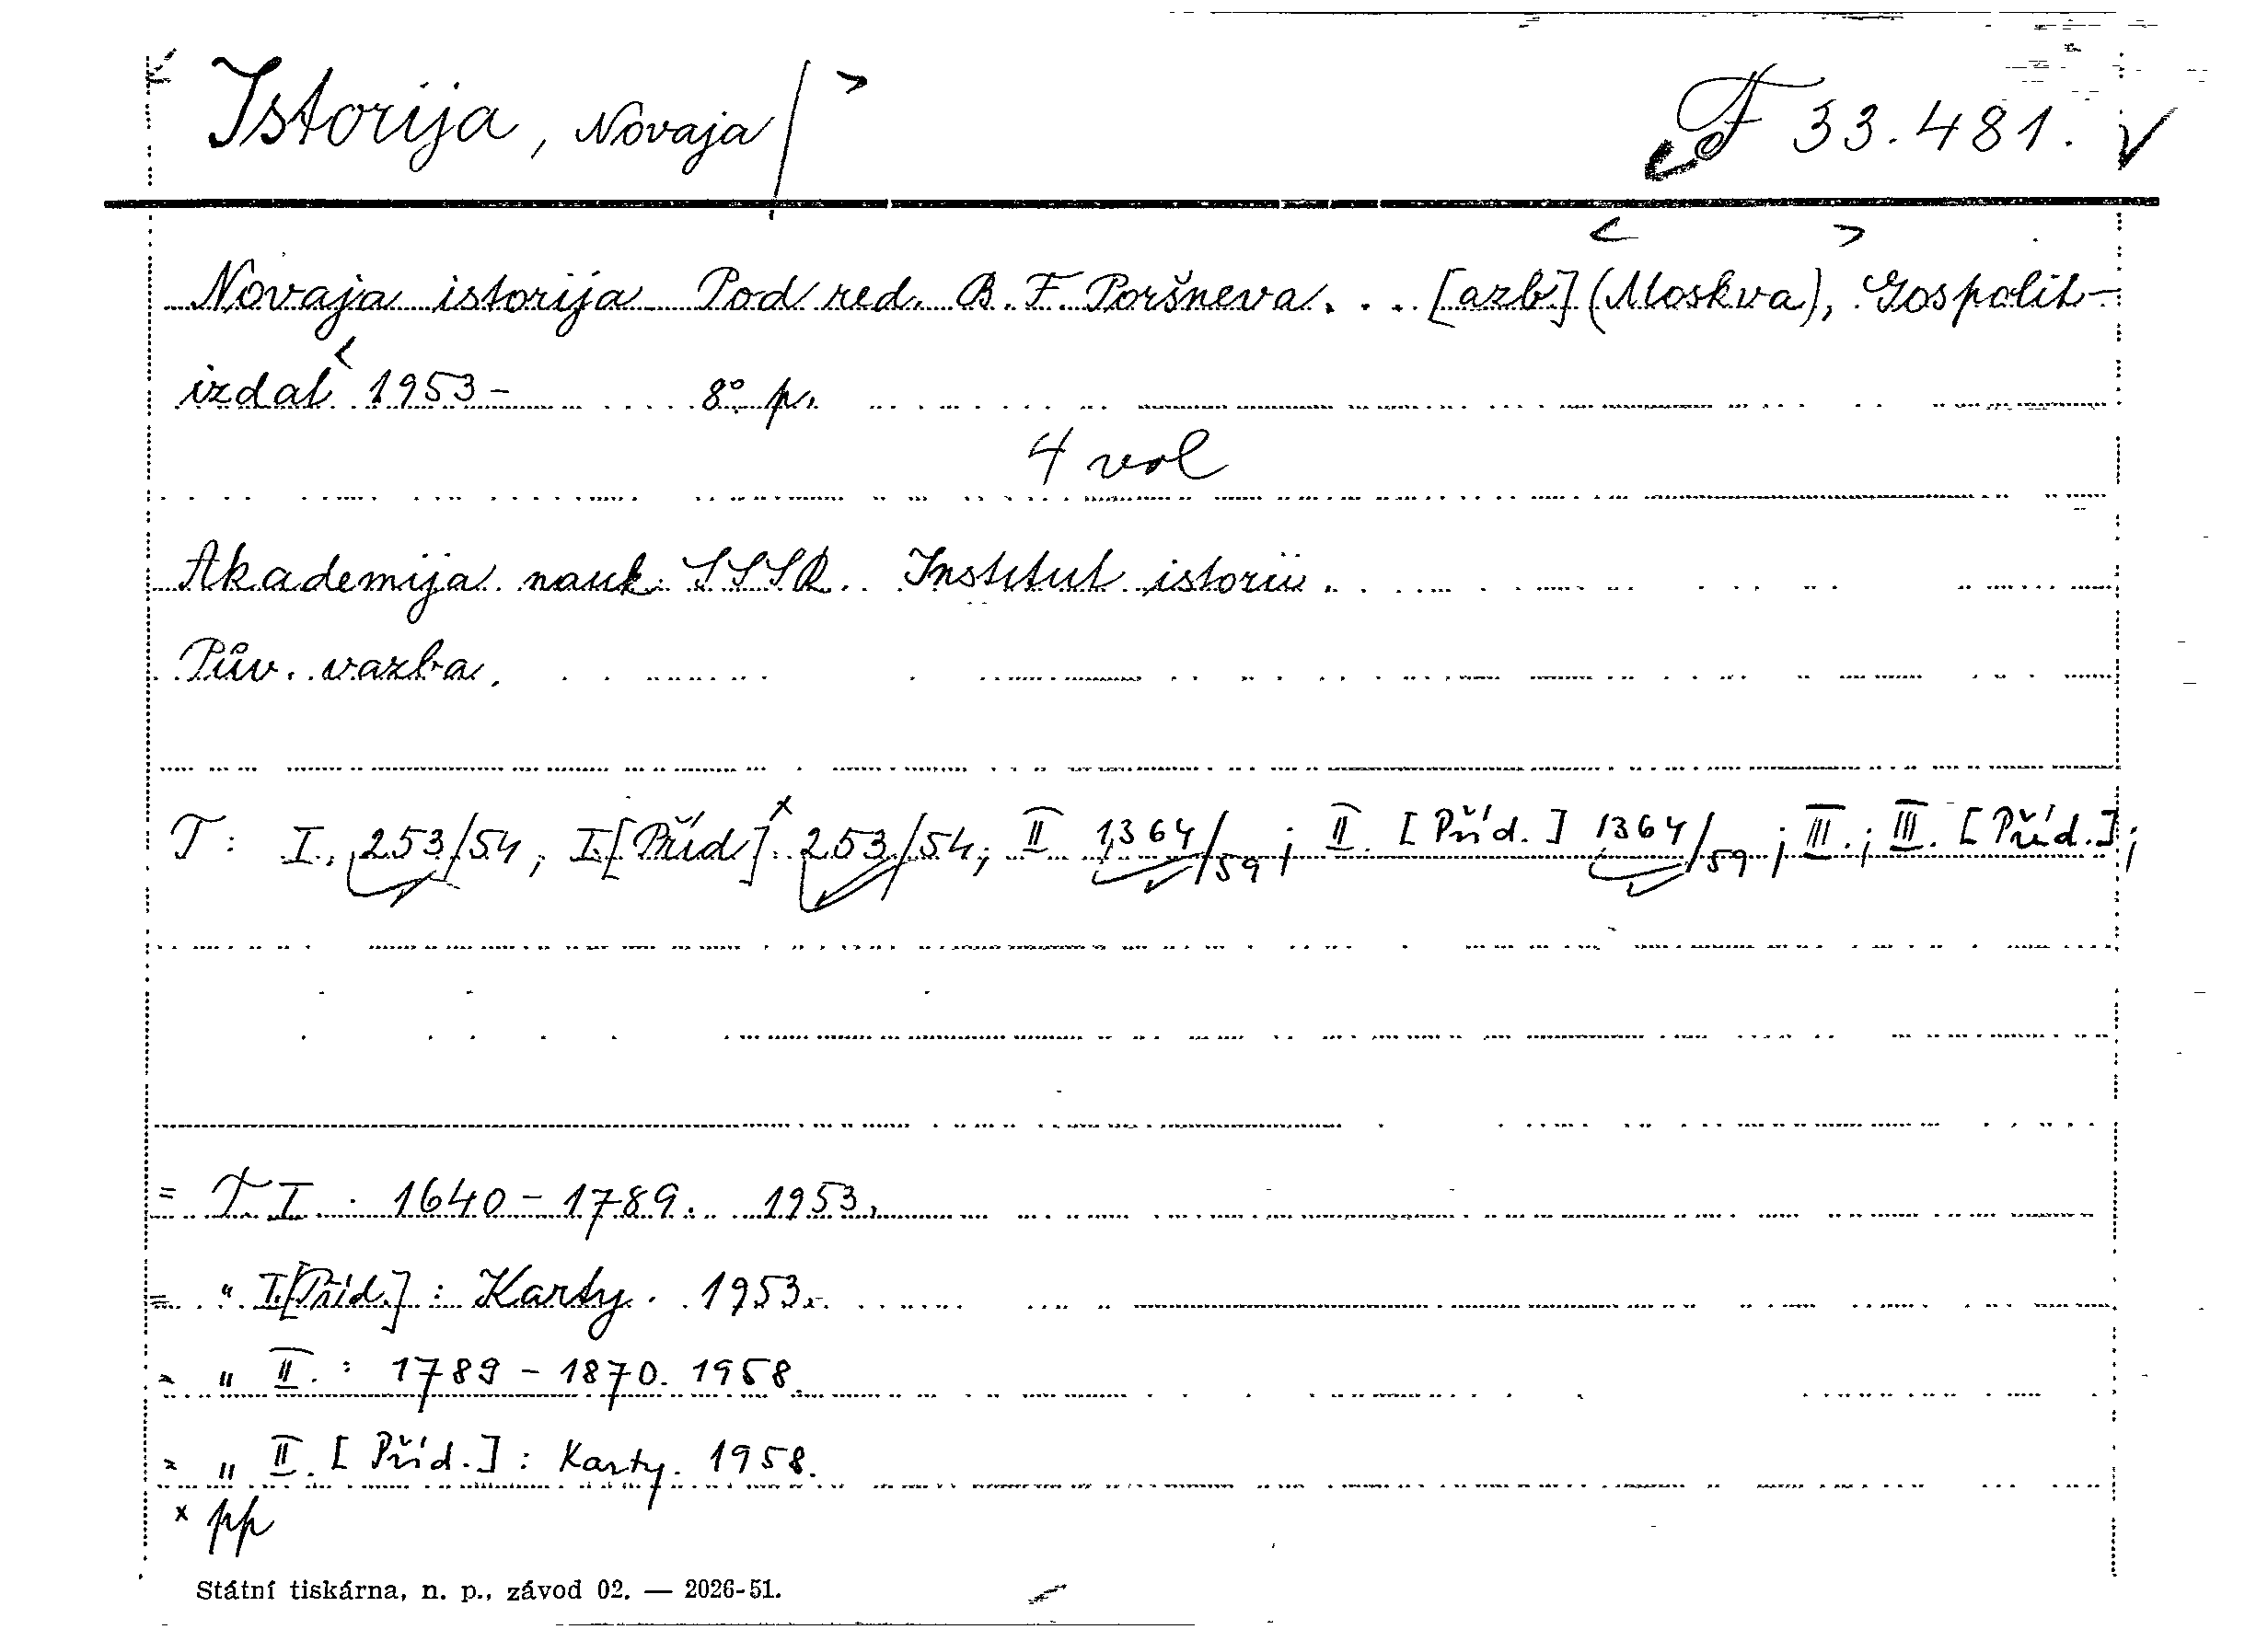 Istorija, Novaja F 33.481.
Novaja istorija Pod red. B. F. Poršneva... [azb] (Moskva), Gospolit-
izdat 1953- 8° p.
4 vol
Akademija nauk SSSR. Institut istorii.
Pův. vazba.
T: I. 253/54, I.[Příd]x 253/54; II 1364/59; II. [Příd.] 1364/59; III.; III. [Příd.];
= T. I. 1640-1789. 1953.
= " I.[Příd.]: Karty. 1953.
= " II.: 1789-1870. 1958.
= " II. [Příd.]: Karty. 1958.
x pp
Státní tiskárna, n. p., závod 02. — 2026-51.